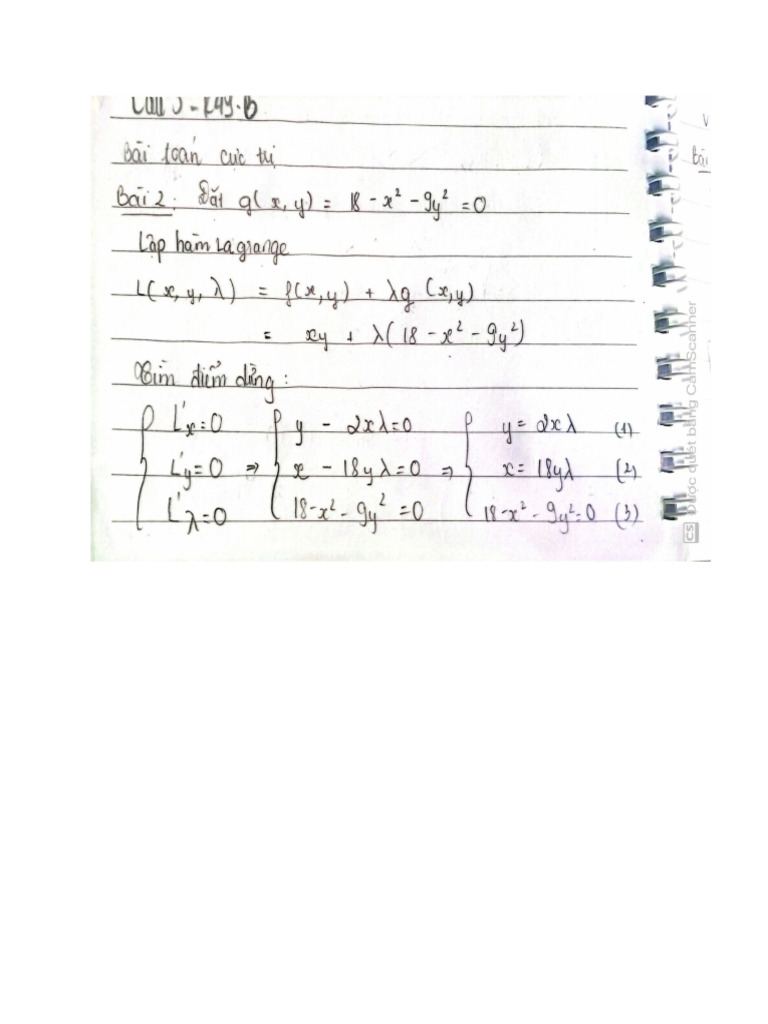 Bài toán cực trị
Bài 2: Đặt g(x, y) = 18 - x² - 9y² = 0
Lập hàm Lagrange
L(x, y, λ) = f(x, y) + λg (x,y)
= xy + λ(18 - x² - 9y²)
Tìm điểm dừng:
{ L'x = 0 { y - 2xλ = 0 { y = 2xλ (1)
{ L'y = 0 => { x - 18yλ = 0 => { x = 18yλ (2)
{ L'λ = 0 { 18 - x² - 9y² = 0 { 18 - x² - 9y² = 0 (3)
CS Được quét bằng CamScanner